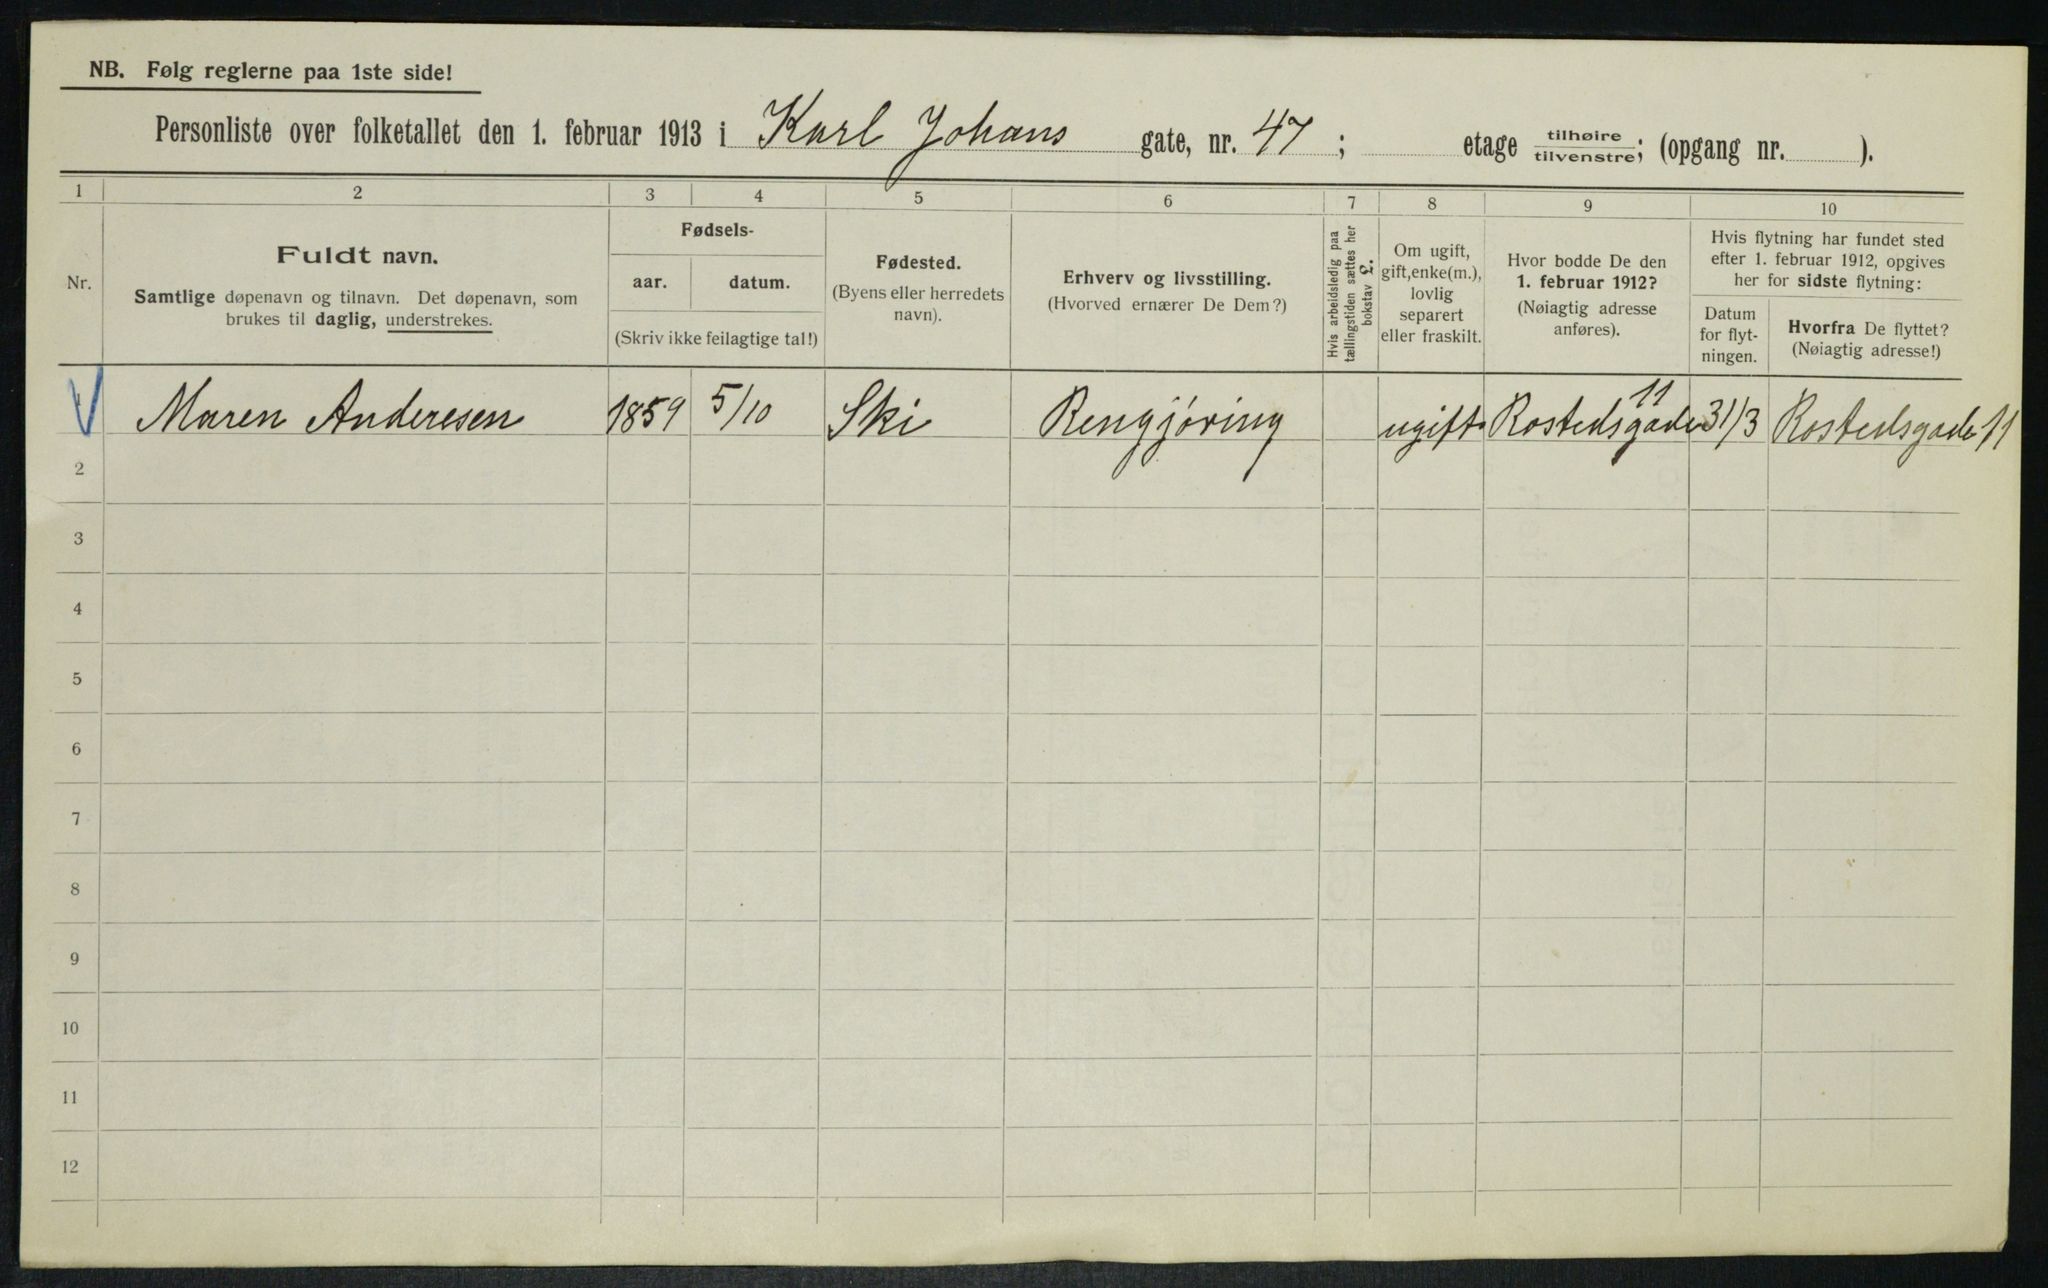 NB. Følg reglerne paa 1ste side!
Personliste over folketallet den 1. februar 1913 i Karl Johans gate, nr. 47; etage tilhøire/tilvenstre; (opgang nr. ).
1 2 3 4 5 6 7 8 9 10
Nr.
Fuldt navn.
Samtlige døpenavn og tilnavn. Det døpenavn, som
brukes til daglig, understrekes.
Fødsels-
aar. datum.
(Skriv ikke feilagtige tal!)
Fødested.
(Byens eller herredets
navn).
Erhverv og livsstilling.
(Hvorved ernærer De Dem?)
Hvis arbeidsledig paa
tællingstiden sættes her
bokstav L.
Om ugift,
gift, enke(m.),
lovlig
separert
eller fraskilt.
Hvor bodde De den
1. februar 1912?
(Nøiagtig adresse
anføres).
Hvis flytning har fundet sted
efter 1. februar 1912, opgives
her for sidste flytning:
Datum
for flyt-
ningen.
Hvorfra De flyttet?
(Nøiagtig adresse!)
1 Maren Anderesen 1859 5/10 Ski Rengjøring ugift Rostedsgade 11 31/3 Rostedsgade 11
2
3
4
5
6
7
8
9
10
11
12